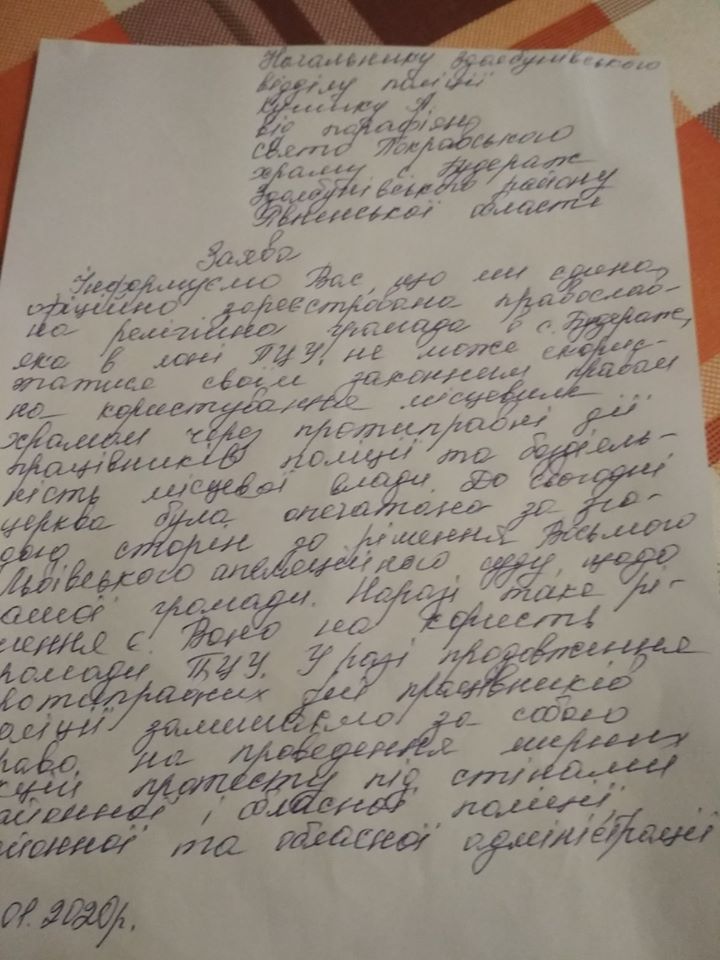 Начальнику Здолбунівського
відділу поліції
Климку А.
від парафіян
Свято Покравського
храму с. Будераж
Здолбунівського району
Рівненської області
Заява
Інформуємо Вас, що ми єдина
офіційно зареєстрована православ-
на релігійна громада в с. Будераж,
яка в лоні ПЦУ, не може скорис-
татися своїм законним правом
на користування місцевим
храмом через протиправні дії
працівників поліції та бездіяль-
ність місцевої влади. До сьогодні
церква була опечатана за зго-
дою сторін до рішення Восьмого
Львівського апеляційного суду, щодо
ашої громади. Наразі таке рі-
шення є. Воно на користь
громади ПЦУ. У разі продовження
ротиправних дій працівників
оліції залишаємо за собою
раво на проведення мирних
кцій протесту під стінами
айонної і обласної поліції,
йонної та обласної адміністрації
01.2020р.